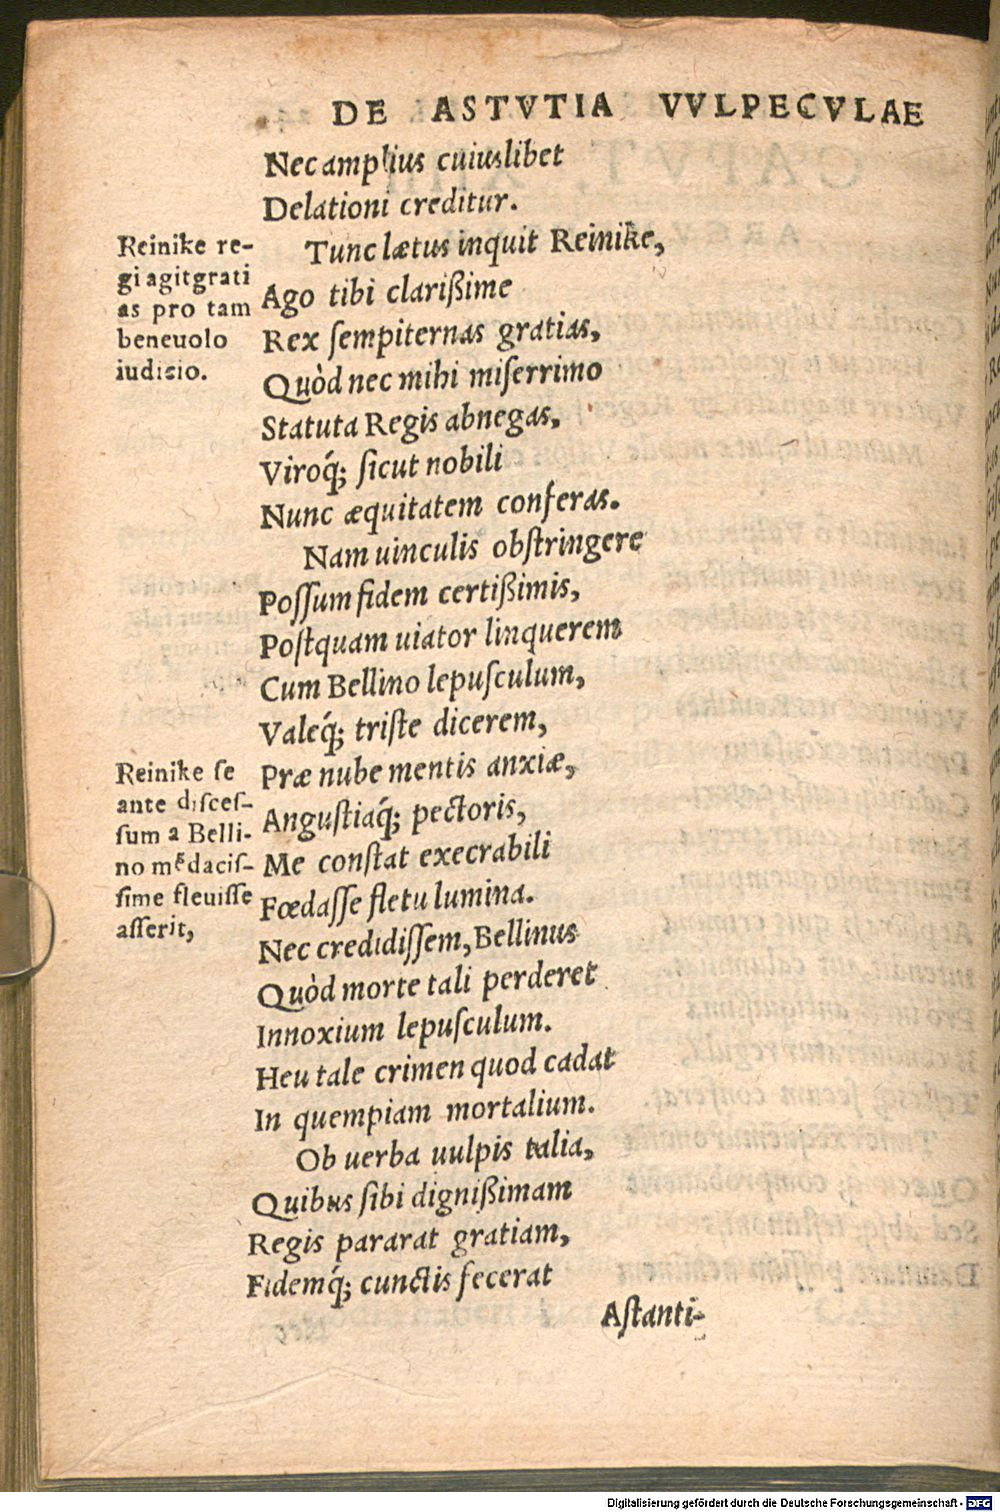 DE ASTVTIA VVLPECVLAE
Nec amplius cuiuslibet
Delationi creditur.
Tunc lætus inquit Reinike,
Ago tibi clarißime
Rex ſempiternas gratias,
Quòd nec mihi miſerrimo
Statuta Regis abnegas,
Viroq́; ſicut nobili
Nunc æquitatem conferas.
Nam uinculis obſtringere
Poſſum fidem certißimis,
Poſtquam uiator linquerem
Cum Bellino lepuſculum,
Valeq́; triſte dicerem,
Præ nube mentis anxiæ,
Anguſtiaq́; pectoris,
Me conſtat execrabili
Fœdaſſe fletu lumina.
Nec credidiſſem, Bellinus
Quòd morte tali perderet
Innoxium lepuſculum.
Heu tale crimen quod cadat
In quempiam mortalium.
Ob uerba uulpis talia,
Quibus ſibi dignißimam
Regis pararat gratiam,
Fidemq́; cunctis fecerat
Aſtanti-
Reinike re-
gi agit grati
as pro tam
beneuolo
iudicio.
Reinike ſe
ante diſceſ-
ſum a Belli-
no mẽdaciſ-
ſime fleuiſſe
aſſerit,
Digitalisierung gefördert durch die Deutsche Forschungsgemeinschaft - DFG